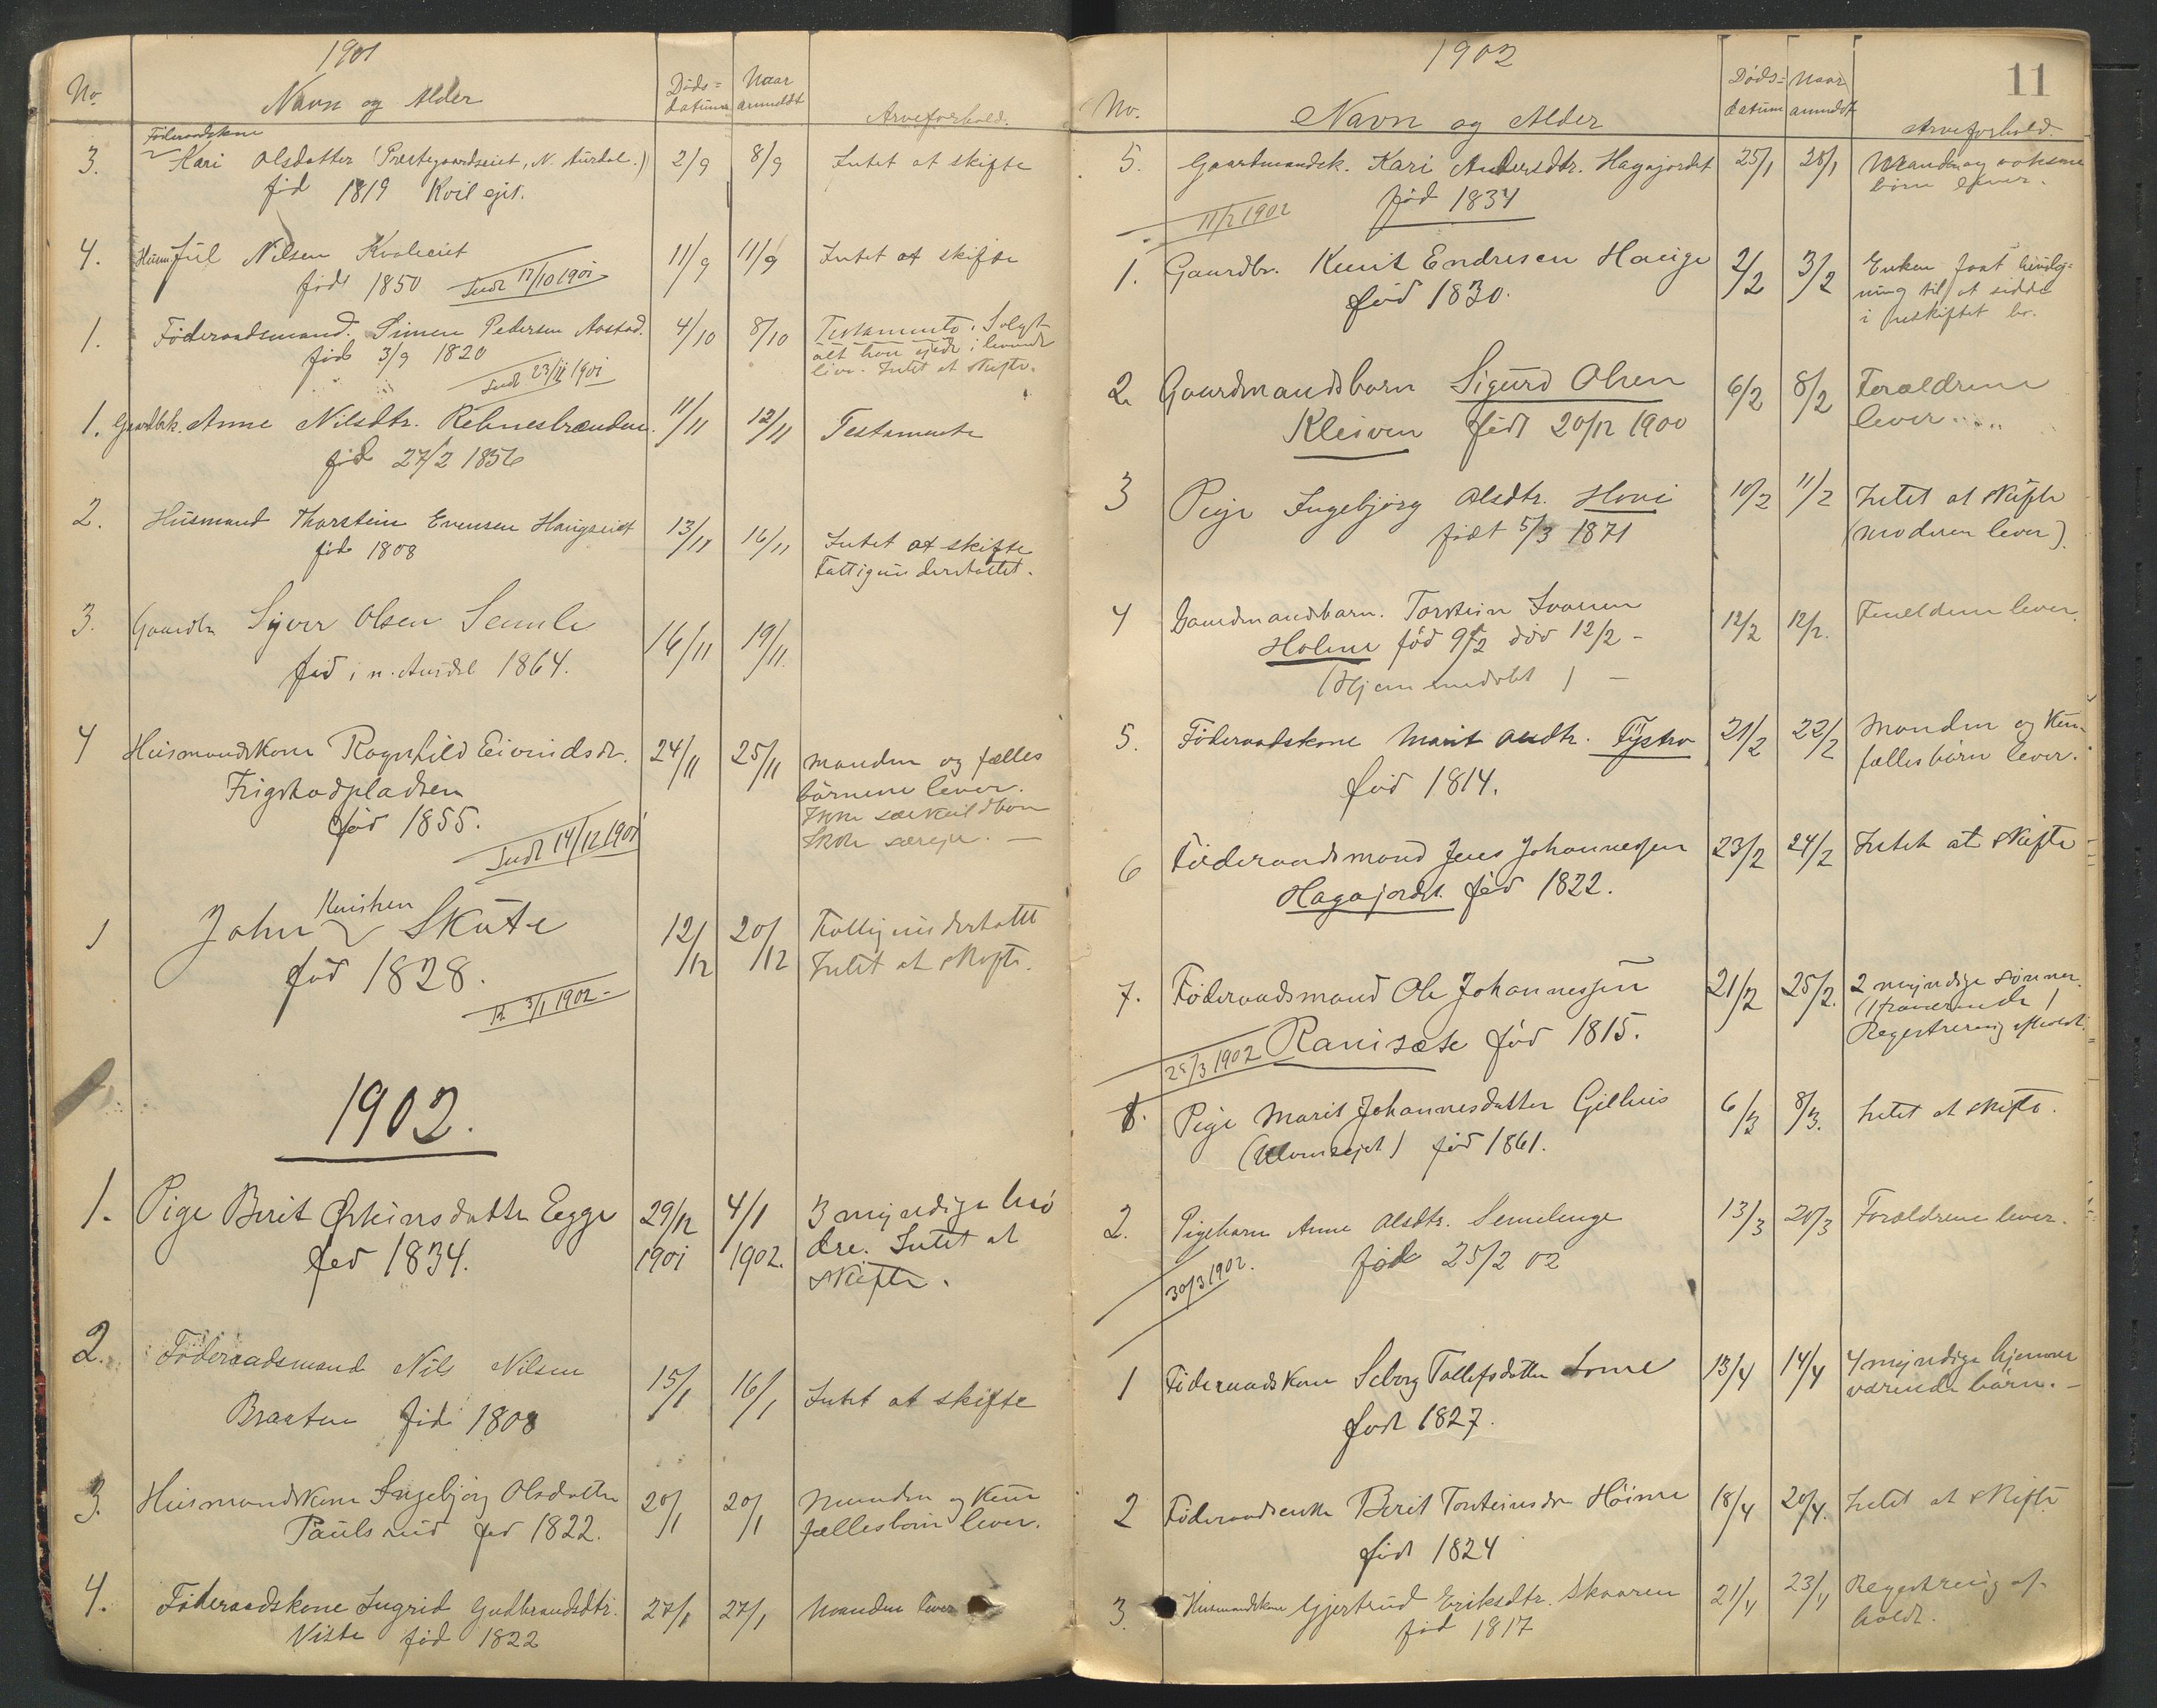 1901
No. Navn og Alder Døds= datum Naar anmeldt Arveforhold.
Föderaadskone
3. Kari Olsdatter (Præstegaardseiet, N. Aurdal.) 2/9 8/9 Intet at skifte
föd 1819
4. Nilsen 11/9 11/9 Intet at skifte
föd 1850 Indb 12/10 1901
1. Föderaadsmand. Simen Pedersen 4/10 8/10 Testamente. Solgt
född 3/9 1820 alt han ejede i levende
liv. Intet at skifte.
Indb 23/11 1901
1. Gaardbk. Anne Nilsdtr. 11/11 12/11 Testamente
föd 27/2 1856
2. Husmand Thorstein Evensen Haugseiet 13/11 16/11 Intet at skifte
föd 1808 Fattigunderstøttet.
3. Gaardbr. Syver Olsen Semle 16/11 19/11
fød i n. Aurdal 1864.
4 Husmandskone Ragnhild Eivindsdr. 24/11 25/11 Manden og fælles
Frigstadpladsen börnene lever.
föd 1855. Ikke særkuldbørn
Ikke særeje. —
Indb 14/12 1901
1 John Knutsen Skute 12/12 20/12 Fattigunderstøttet
fød 1828. Intet at skifte.
3/1 1902 -
1902.
1. Pige Berit Østensdatter Egge 29/12 1901 4/1 1902. 3 myndige brö
fød 1834. dre. Intet at
skifte.
2. Föderaadsmand Nils Nilsen 15/1 16/1 Intet at skifte
Braaten föd 1808
3. Husmandskone Ingebjörg Olsdatter 20/1 20/1 Manden og kun
Paulsrud fød 1822. fællesbörn lever.
4. Föderaadskone Ingrid Gudbrandsdtr. 27/1 27/1 Manden lever
Viste föd 1822
1902 11
No. Navn og Alder Døds= datum Naar anmeldt Arveforhold.
5. Gaardmandsk. Kari Andersdtr. Hagajordet 25/1 28/1 Manden og voksne
föd 1834 börn lever.
11/2 1902
1. Gaardbr. Knut Endresen Hauge 2/2 3/2 Enken faat bevilg=
föd 1830. ning til at sidde
i uskiftet bo.
2. Gaardmandsbarn Sigurd Olsen 6/2 8/2 Forældrene
Kleiven född 20/12 1900 lever.
3 Pige Ingebjörg Olsdtr. Hovi 10/2 11/2 Intet at skifte
född 5/3 1871 (moderen lever).
4 Gaardmandsbarn. Torstein Ivarsen 12/2 12/2. Forældrene lever.
Holme föd 9/2 död 12/2 -
(Hjemmedøbt) —
5. Föderaadskone Marit Andtr. 21/2 22/2 Manden og kun
föd 1814. fællesbörn lever.
6 Föderaadsmand Jens Johannessen 23/2 24/2 Intet at skifte
Hagajordet. föd 1822.
7. Föderaadsmand Ole Johannessen 21/2 25/2. 2 myndige sönner.
Ranisæte föd 1815. (1 fraværende)
Registrering afholdt.
25/3 1902
1. Pige Marit Johannesdatter Gilhus 6/3 8/3. Intet at skifte.
föd 1861.
2. Pigebarn Anne Olsdtr. Semelenge 13/3 20/3 Forældrene lever.
född 25/2 02
30/3 1902.
1 Föderaadskone Seborg Tollefsdatter 13/4 14/4 4 myndige hjemme
född 1827. værende börn. —
2 Föderaadsenke Berit Torsteinsdr. Höime 18/4 20/4. Intet at skifte
född 1824
3. Husmandskone Gjertrud Eriksdtr. Skaaren 21/4 23/4 Registrering af-
föd 1817 holdt.